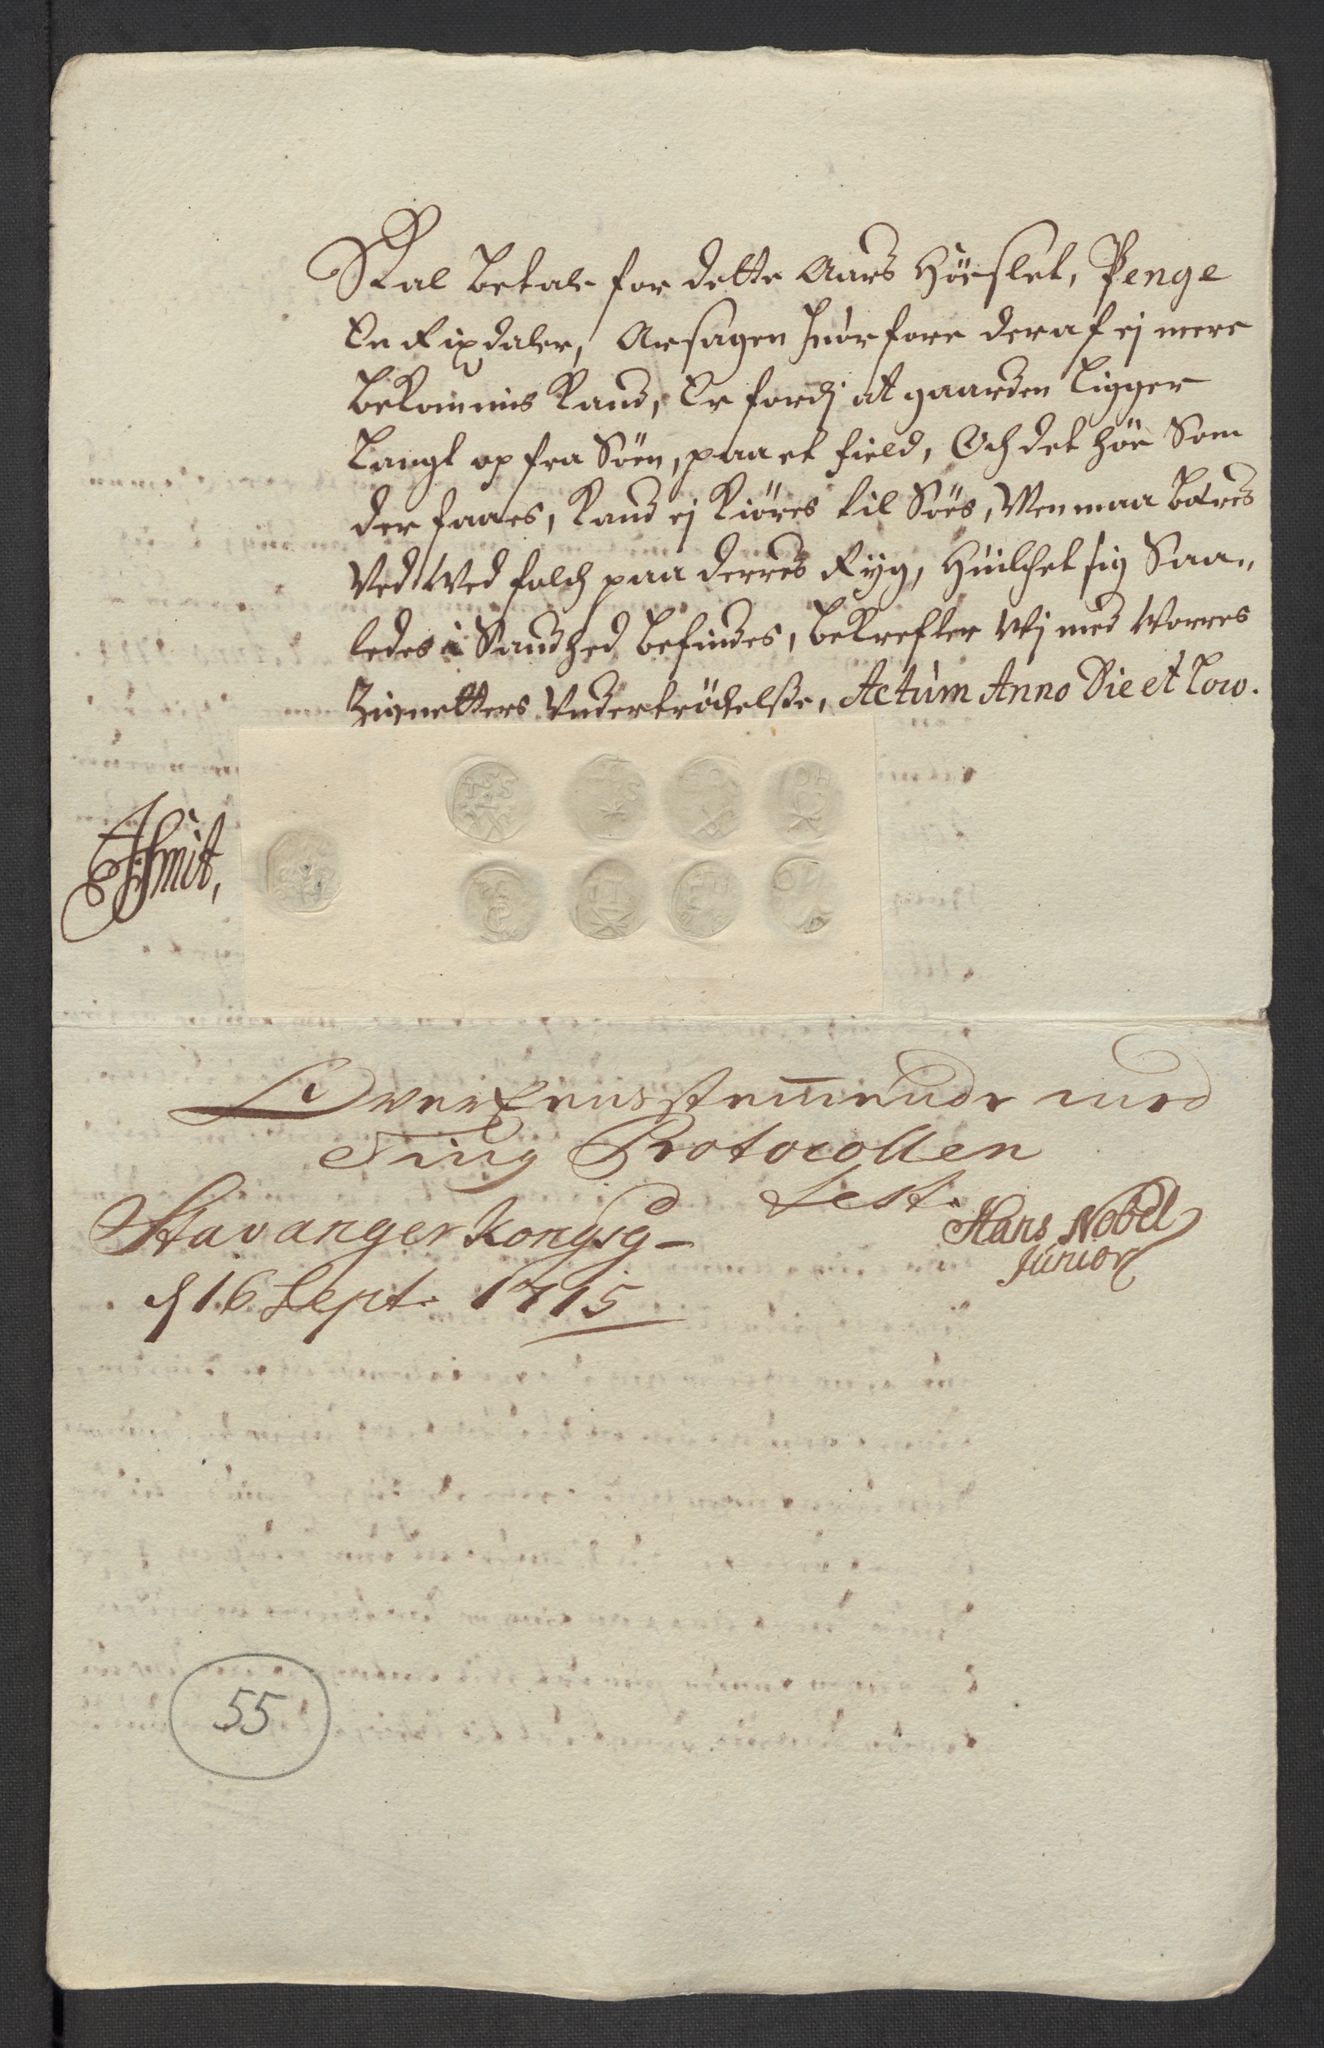 Skal betale for dette Aars Höeslet, Penge
En Rixdaler, Aarsagen huorfore deraf ej mere
bekommis kand, Er fordj at gaarden ligger
langt op fra Söen, paa et field, Och det höe Som
der faaes, kand ej kiöres til Söes, Men maa bæres
Ved Med folch paa derres Ryg, Huilchet sig Saa„
ledes i Sandhed befindes, bekrefter Wj med Vorres
Zignetters Undertröchelsse, Actum Anno Die et Loco.
Smit,
Overeensstemmende med
Ting Protocollen
Test.
Hans Nobel
Junior
Stavanger Kongsg-
d 16 Sept. 1715
55